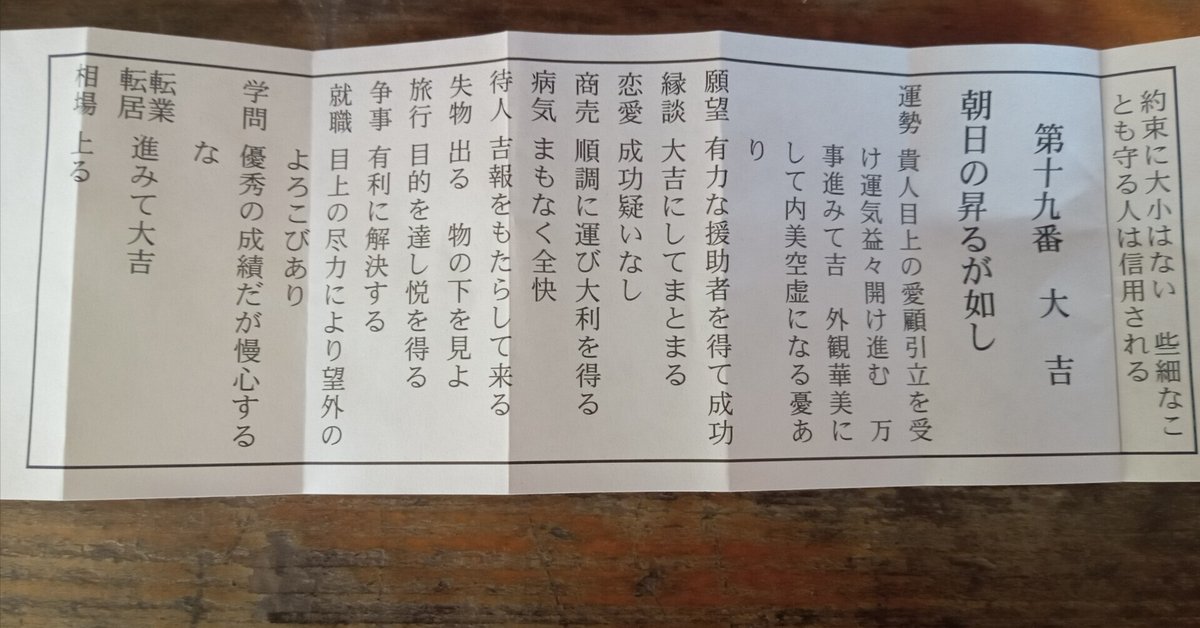 約束に大小はない 些細なこ
とも守る人は信用される
第十九番 大吉
朝日の昇るが如し
運勢 貴人目上の愛顧引立を受
け運気益々開け進む 万
事進みて吉 外観華美に
して内美空虚になる憂あ
り
願望 有力な援助者を得て成功
縁談 大吉にしてまとまる
恋愛 成功疑いなし
商売 順調に運び大利を得る
病気 まもなく全快
待人 吉報をもたらして来る
失物 出る 物の下を見よ
旅行 目的を達し悦を得る
争事 有利に解決する
就職 目上の尽力により望外の
よろこびあり
学問 優秀の成績だが慢心する
な
転業
転居 進みて大吉
相場 上る